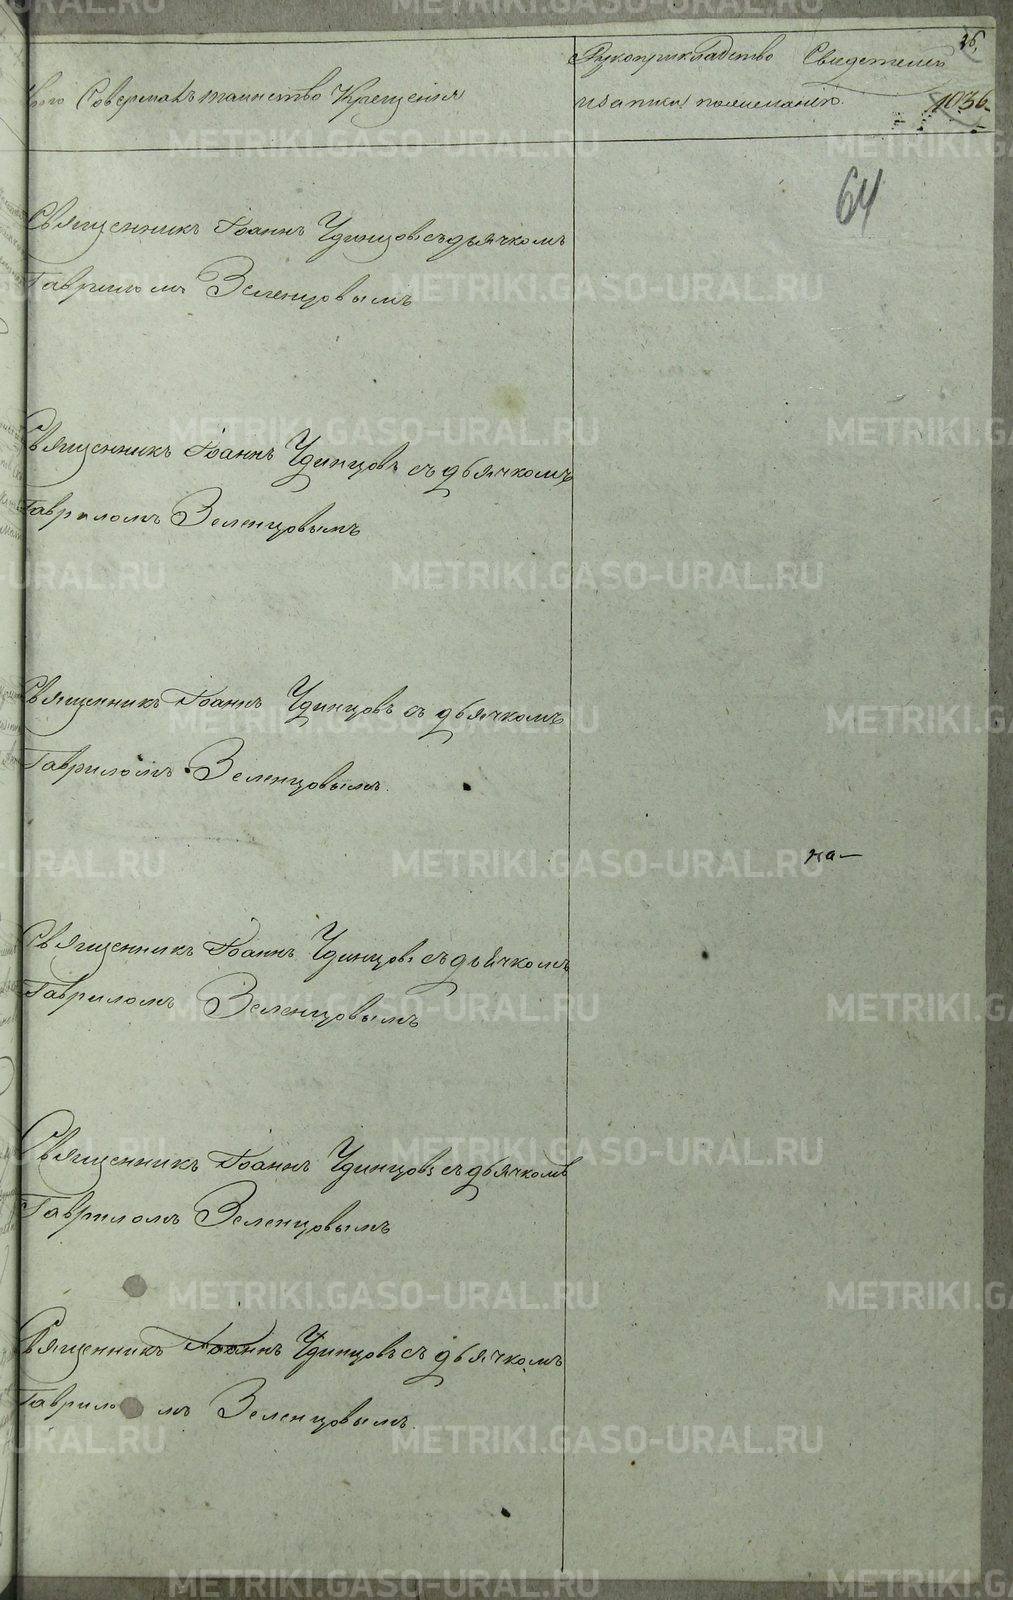 26.
Рукоприкладство Свидетелей
Совершалъ таинство Крещения
записи по желанію.
1036
64
Священникъ Іоаннъ Удинцовъ съ дьячкомъ
Гавриломъ Зеленцовымъ
Священникъ Іоаннъ Удинцовъ съ дьячкомъ
Гавриломъ Зеленцовымъ
Священникъ Іоаннъ Удинцовъ съ дьячкомъ
Гавриломъ Зеленцовымъ.
на-
Священникъ Іоаннъ Удинцовъ съ дьячкомъ
Гавриломъ Зеленцовымъ
Священникъ Іоаннъ Удинцовъ съ дьячкомъ
Гавриломъ Зеленцовымъ
Священникъ Іоаннъ Удинцовъ съ дьячкомъ
Гавриломъ Зеленцовымъ.
METRIKI.GASO-URAL.RU